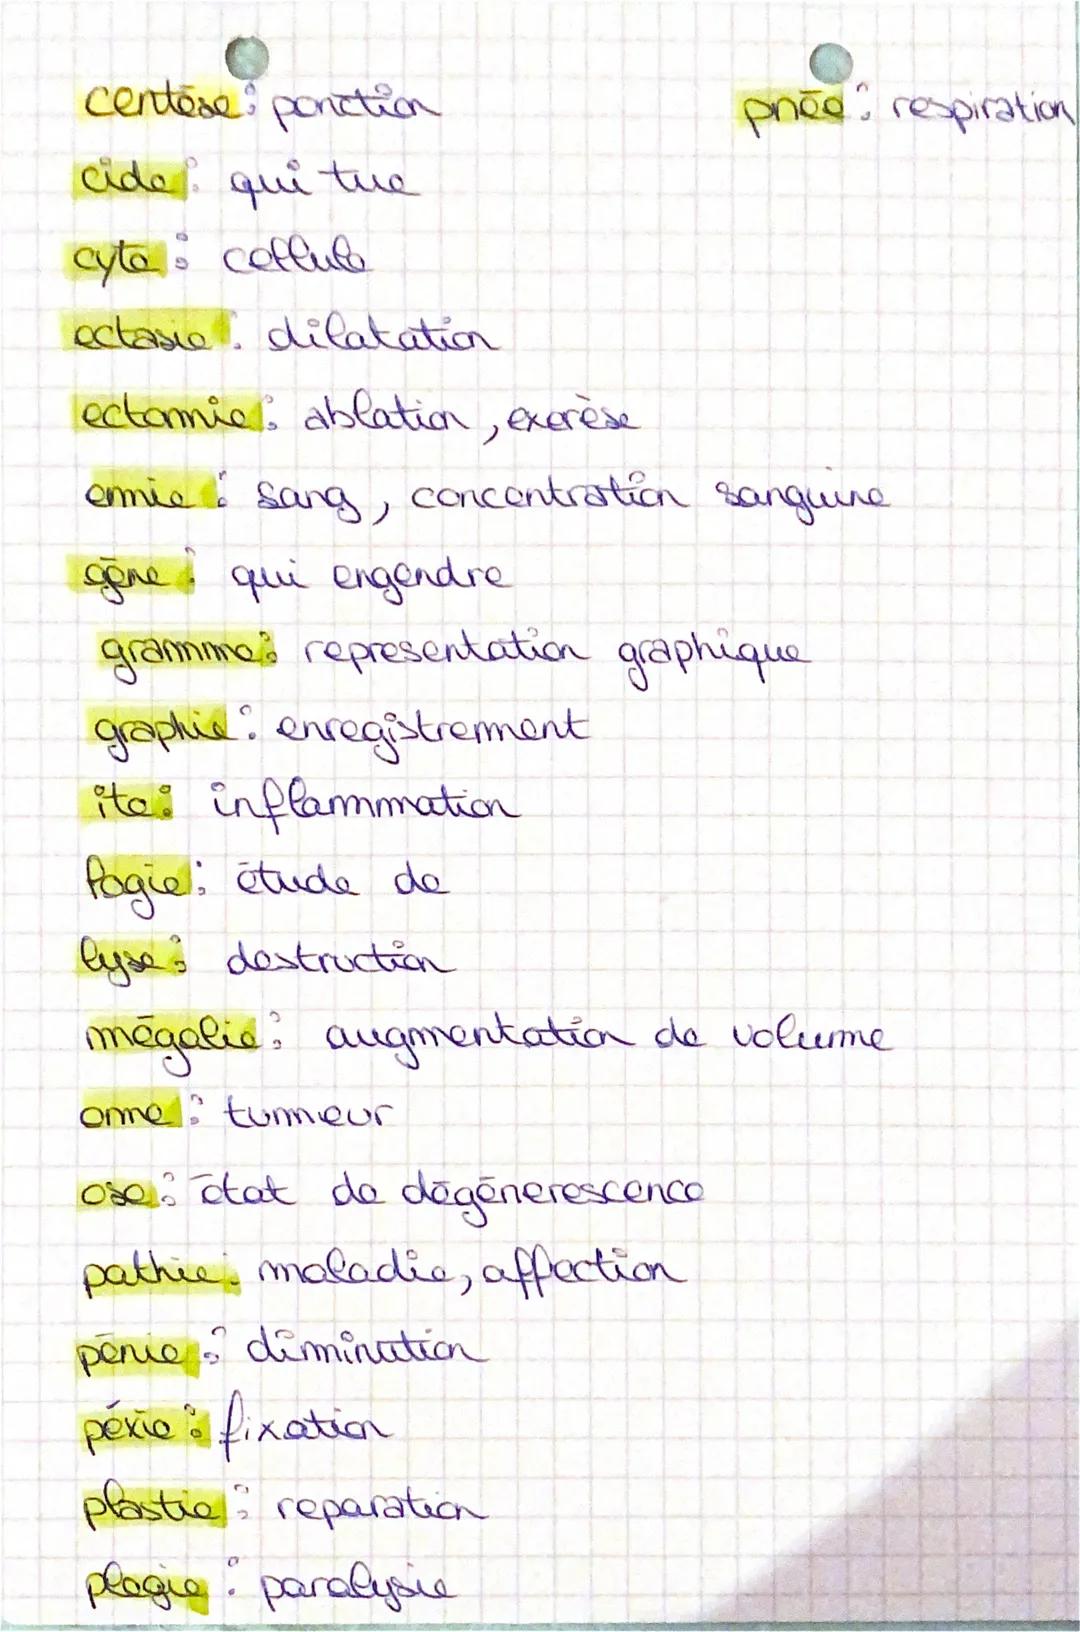 centēse : ponction
cide : qui tue
cyte : cellule
ectasie : dilatation
ectomie : ablation, exerèse
emie : sang, concentration sanguine
gēne : qui engendre
gramme : representation graphique
graphie : enregistrement
ite : inflammation
logie : ētude de
lyse : destruction
mēgalie : augmentation de volume
ome : tumeur
ose : ētat de dēgēnerescence
pathie : maladie, affection
pēnie : diminution
péxie : fixation
plastie : reparation
plegie : paralysie
pnēe : respiration